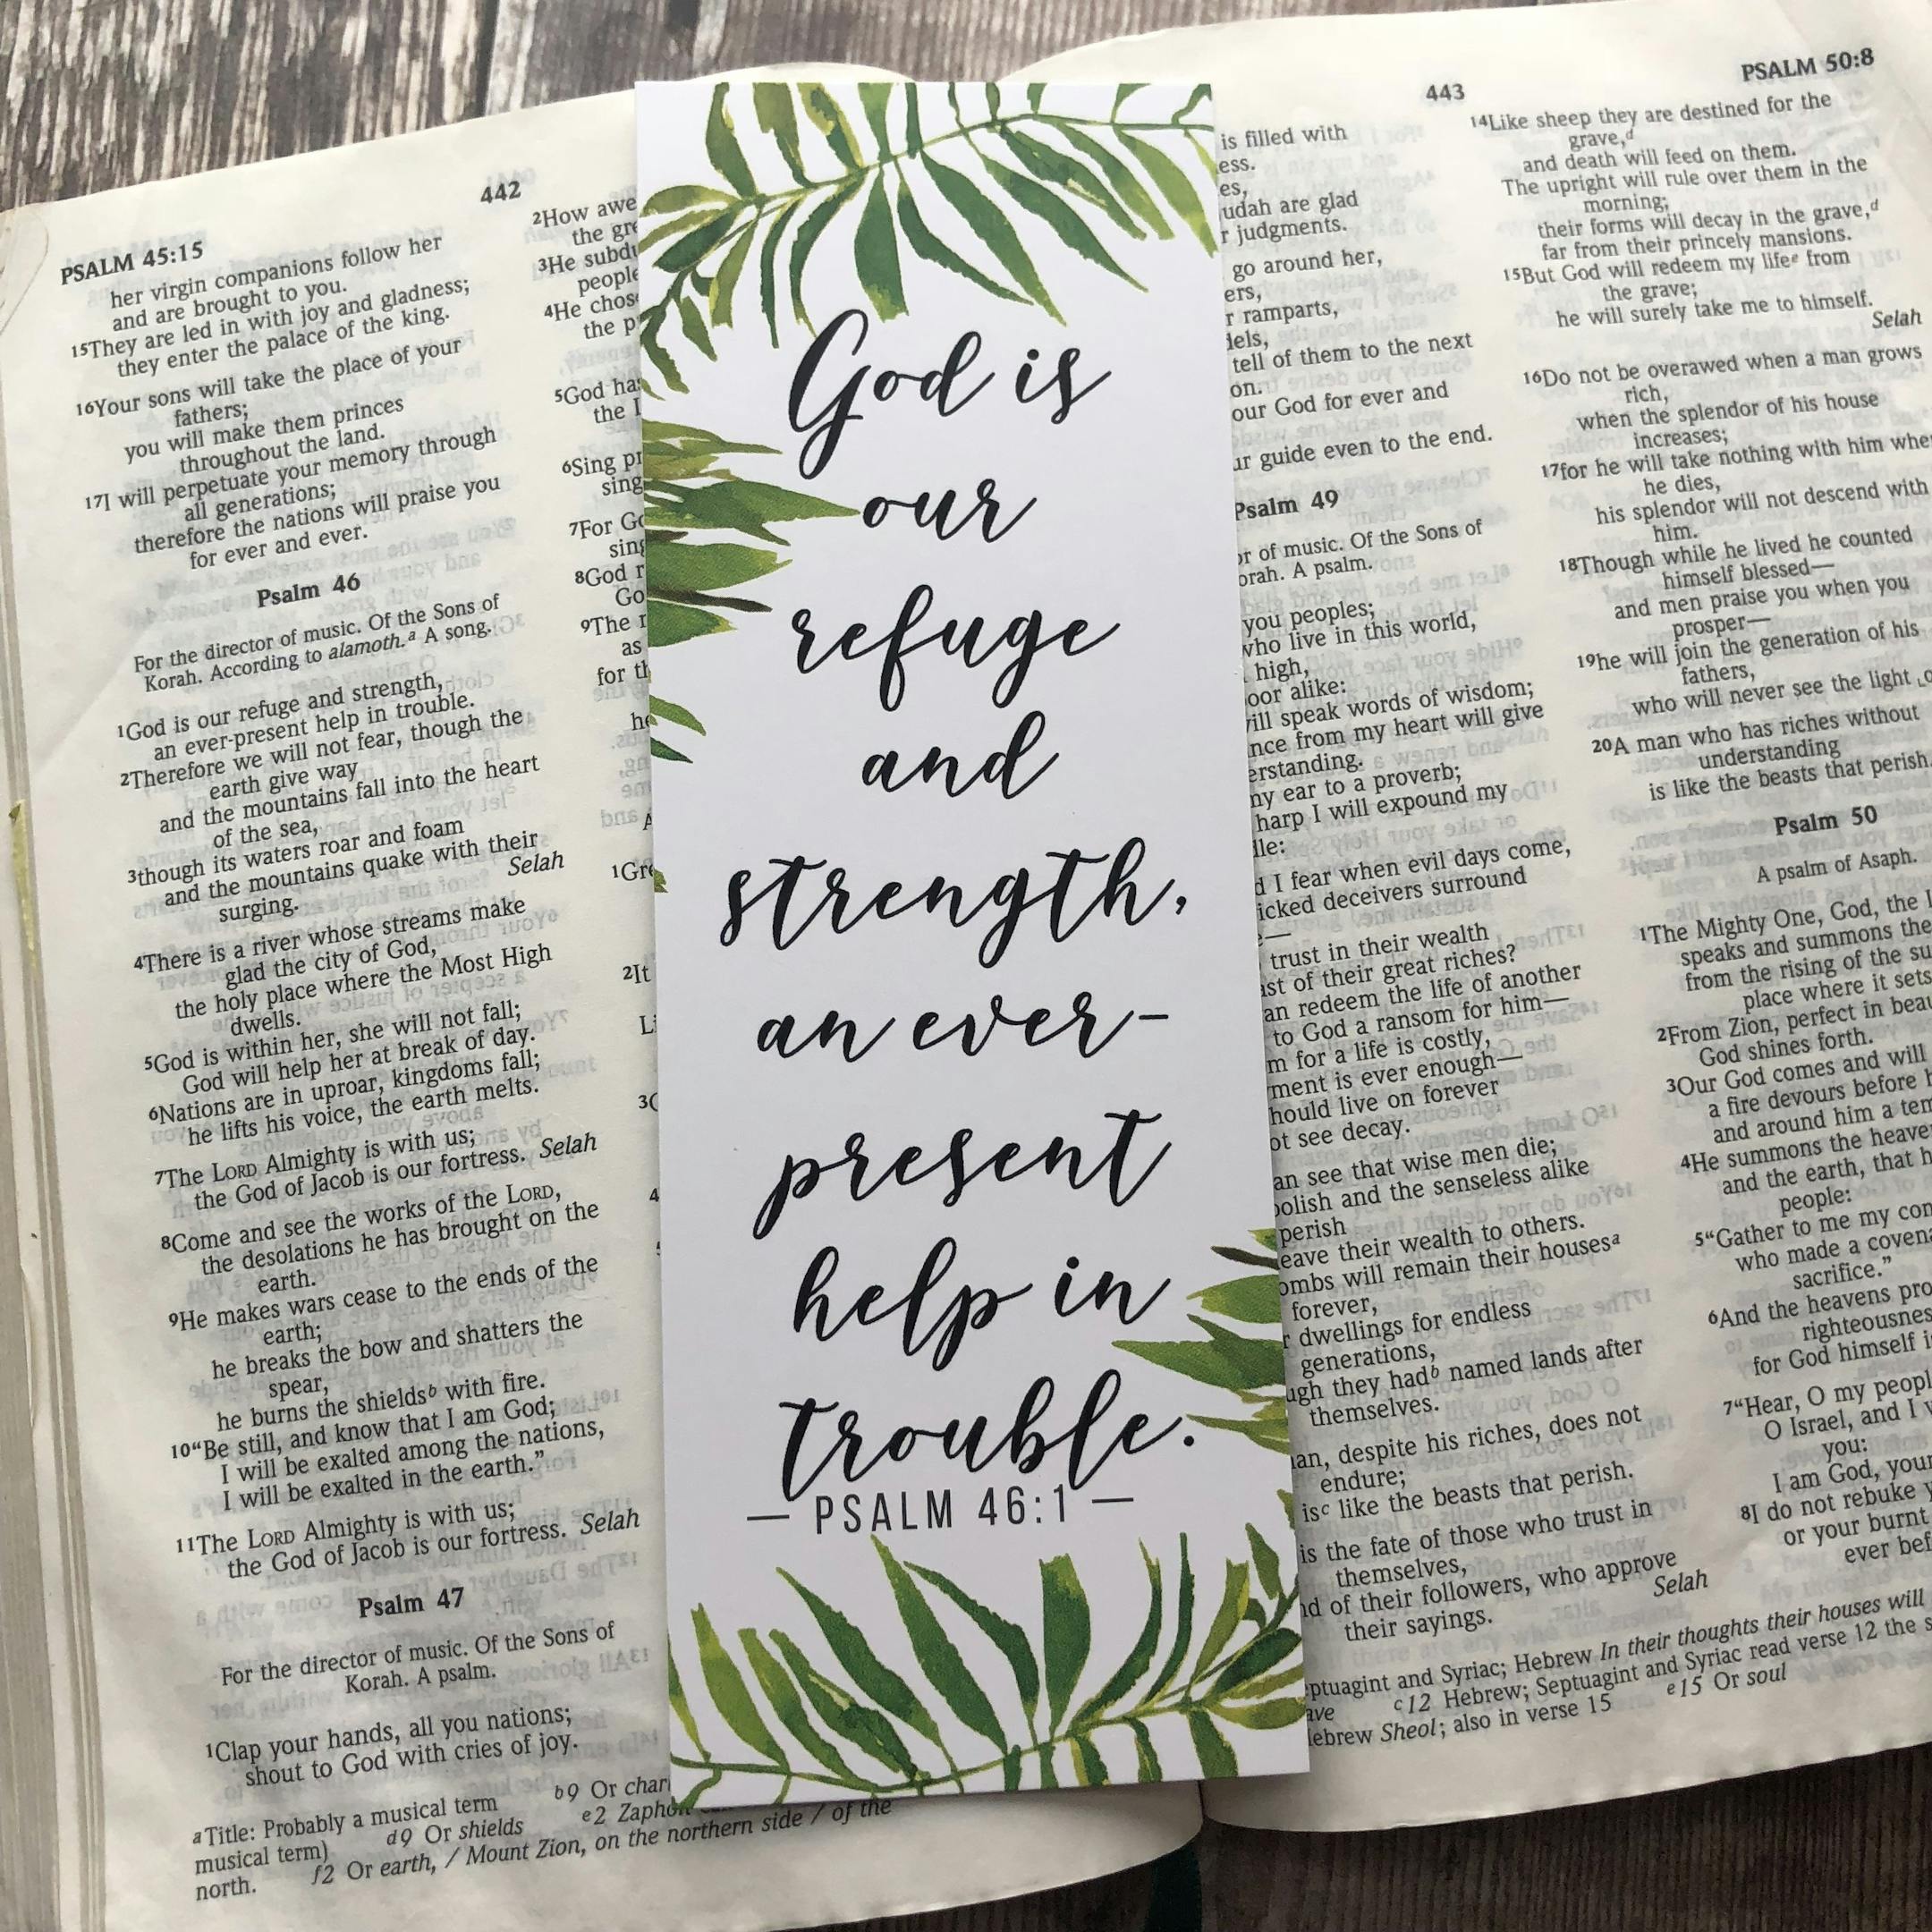 442
PSALM 45:15
her virgin companions follow her
and are brought to you.
15They are led in with joy and gladness;
they enter the palace of the king.
16Your sons will take the place of your
fathers;
you will make them princes
throughout the land.
17I will perpetuate your memory through
all generations;
therefore the nations will praise you
for ever and ever.
Psalm 46
For the director of music. Of the Sons of
Korah. According to alamoth.a A song.
1God is our refuge and strength,
an ever-present help in trouble.
2Therefore we will not fear, though the
earth give way
and the mountains fall into the heart
of the sea,
3though its waters roar and foam
and the mountains quake with their
surging. Selah
4There is a river whose streams make
glad the city of God,
the holy place where the Most High
dwells.
5God is within her, she will not fall;
God will help her at break of day.
6Nations are in uproar, kingdoms fall;
he lifts his voice, the earth melts.
7The LORD Almighty is with us;
the God of Jacob is our fortress. Selah
8Come and see the works of the LORD,
the desolations he has brought on the
earth.
9He makes wars cease to the ends of the
earth;
he breaks the bow and shatters the
spear,
he burns the shieldsb with fire.
10"Be still, and know that I am God;
I will be exalted among the nations,
I will be exalted in the earth."
11The LORD Almighty is with us;
the God of Jacob is our fortress. Selah
Psalm 47
For the director of music. Of the Sons of
Korah. A psalm.
1Clap your hands, all you nations;
shout to God with cries of joy.
aTitle: Probably a musical term b9 Or
musical term) d9 Or shields e2
north. f2 Or earth, / Mount Zion, on the northern side / of the
2How
the
3He
4He
the
5God
the
6Sing
sing
7For
8God
9The
as
for
2It
God is
our
refuge
and
strength,
an ever-
present
help in
trouble.
— PSALM 46:1 —
443
PSALM 50:8
is filled with
are glad
judgments.
go around her,
ramparts,
tell of them to the next
our God for ever and
guide even to the end.
Psalm 49
of music. Of the Sons of
A psalm.
you peoples;
who live in this world,
high,
alike:
speak words of wisdom;
from my heart will give
ear to a proverb;
harp I will expound my
I fear when evil days come,
deceivers surround
trust in their wealth
of their great riches?
redeem the life of another
to God a ransom for him—
for a life is costly,
is ever enough—
live on forever
see decay.
see that wise men die;
and the senseless alike
perish
their wealth to others.
will remain their housesa
forever,
dwellings for endless
generations,
they hadb named lands after
themselves.
despite his riches, does not
endure;
isc like the beasts that perish.
is the fate of those who trust in
themselves,
of their followers, who approve
their sayings. Selah
14Like sheep they are destined for the
grave,d
and death will feed on them.
The upright will rule over them in the
morning;
their forms will decay in the grave,d
far from their princely mansions.
15But God will redeem my lifee from
the grave;
he will surely take me to himself.
Selah
16Do not be overawed when a man grows
rich,
when the splendor of his house
increases;
17for he will take nothing with him
he dies,
his splendor will not descend with
him.
18Though while he lived he counted
himself blessed—
and men praise you when you
prosper—
19he will join the generation of his
fathers,
who will never see the light
20A man who has riches without
understanding
is like the beasts that perish.
Psalm 50
A psalm of Asaph.
1The Mighty One, God, the
speaks and summons the
from the rising of the
place where it sets
2From Zion, perfect in
God shines forth.
3Our God comes and will
a fire devours before
and around him a
4He summons the
and the earth, that
people:
5"Gather to me my
who made a
sacrifice."
6And the heavens
for God himself
7"Hear, O my
O Israel, and I
you:
I am God,
8I do not rebuke
or your burnt
ever
and Syriac; Hebrew In their thoughts their houses will
c12 Hebrew; Septuagint and Syriac read verse 12 the
Sheol; also in verse 15 e15 Or soul